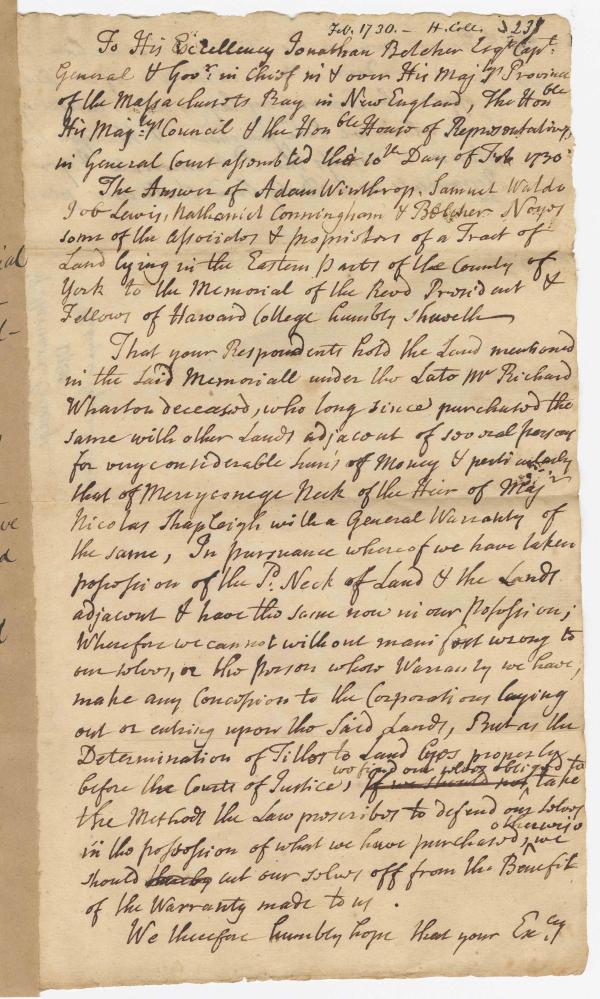 Feb. 1730. - H. Coll. 
To His Excellency Jonathan Belcher Esqr. Capt.
General & Govr. in Chief in & over His Majtys Province
of the Massachusets Bay in New England, The Honble
His Majtys Council & the Honble House of Representatives
in General Court assembled the 10th Day of Feb. 1730
The Answer of Adam Winthrop, Samuel Waldo
Job Lewis, Nathaniel Conningham & Belcher Noyes
some of the Associates & proprietors of a Tract of
Land lying in the Eastern parts of the County of
York to the Memorial of the Revd President &
Fellows of Harvard College humbly sheweth
That your Respondents hold the Land mentioned
in the Said Memoriall under the Late Mr Richard
Wharton deceased, who long since purchased the
same with other Lands adjacent of several persons
for very considerable Sum's of Money & perticularly
that of Merryconege Neck of the Heir of Majr
Nicolas Shapleigh with a General Warranty of
the same, In pursuance whereof we have taken
possession of the Sd. Neck of Land & the Lands
adjacent & have the same now in our possession;
Wherefore we cannot without manifest wrong to
our selves, or the person whose Warranty we have,
make any Concession to the Corporations laying
out or entring upon the Said Lands, But as the
Determination of Titles to Land lyes properly
before the Courts of Justice, if we should not we find our selves obliged to take
the Methods the Law prescribes to defend our selves
in the possession of what we have purchased, otherwise we
should thereby cut our selves off from the Benefit
of the Warranty made to us.
We therefore humbly hope that your Excy